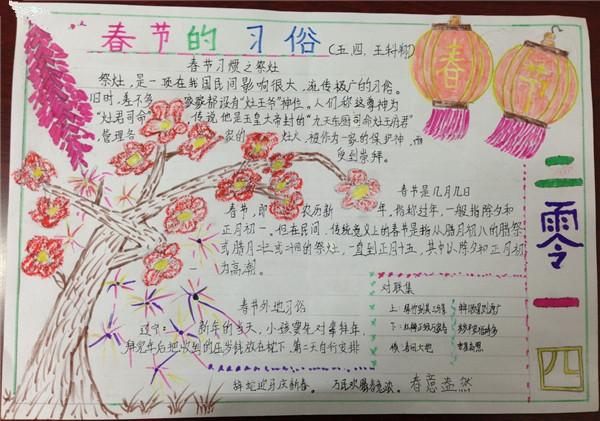 春节的习俗
(五、四、王科翔)
春节习惯之祭灶
祭灶,是一项在我国民间影响很大,流传极广的习俗。
旧时,差不多 家家都设有“灶王爷”神位。人们称这尊神为
“灶君司命”, 传说他是玉皇大帝封的“九天东厨司命灶王府君”
管理各 家的 灶火,被作为一家的保护神,而
受到崇拜。
春
节
春节是几月几日
春节,即 农历新 年,指称过年,一般指除夕和
正月初一。但在民间,传统意义上的春节是指从腊月初八的腊祭
或腊月 的祭灶,一直到正月十五,其中以除夕和正月初一
为高潮。
二零一四
春节外地习俗
辽宁: 新年的当天,小孩要先对辈拜年,
拜完年后把收到的压岁钱放在枕下,第二天自行安排
对联集
上:
下:
横:春回大地
辞蛇迎马庆新春。 万民欢腾
春意盎然